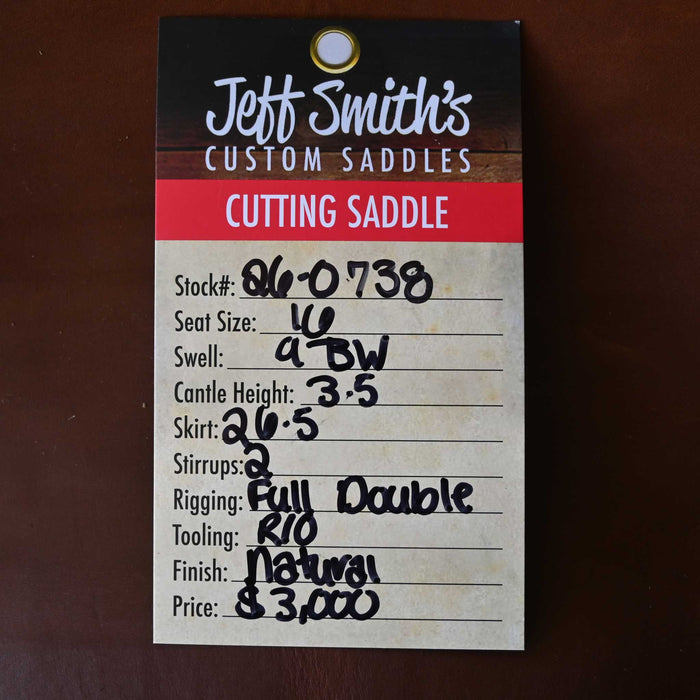 Jeff Smith's
CUSTOM SADDLES
CUTTING SADDLE
Stock#: 26-0738
Seat Size: 16
Swell: 9 BW
Cantle Height: 3.5
Skirt: 26.5
Stirrups: 2
Rigging: Full Double
Tooling: RIO
Finish: Natural
Price: $3,000